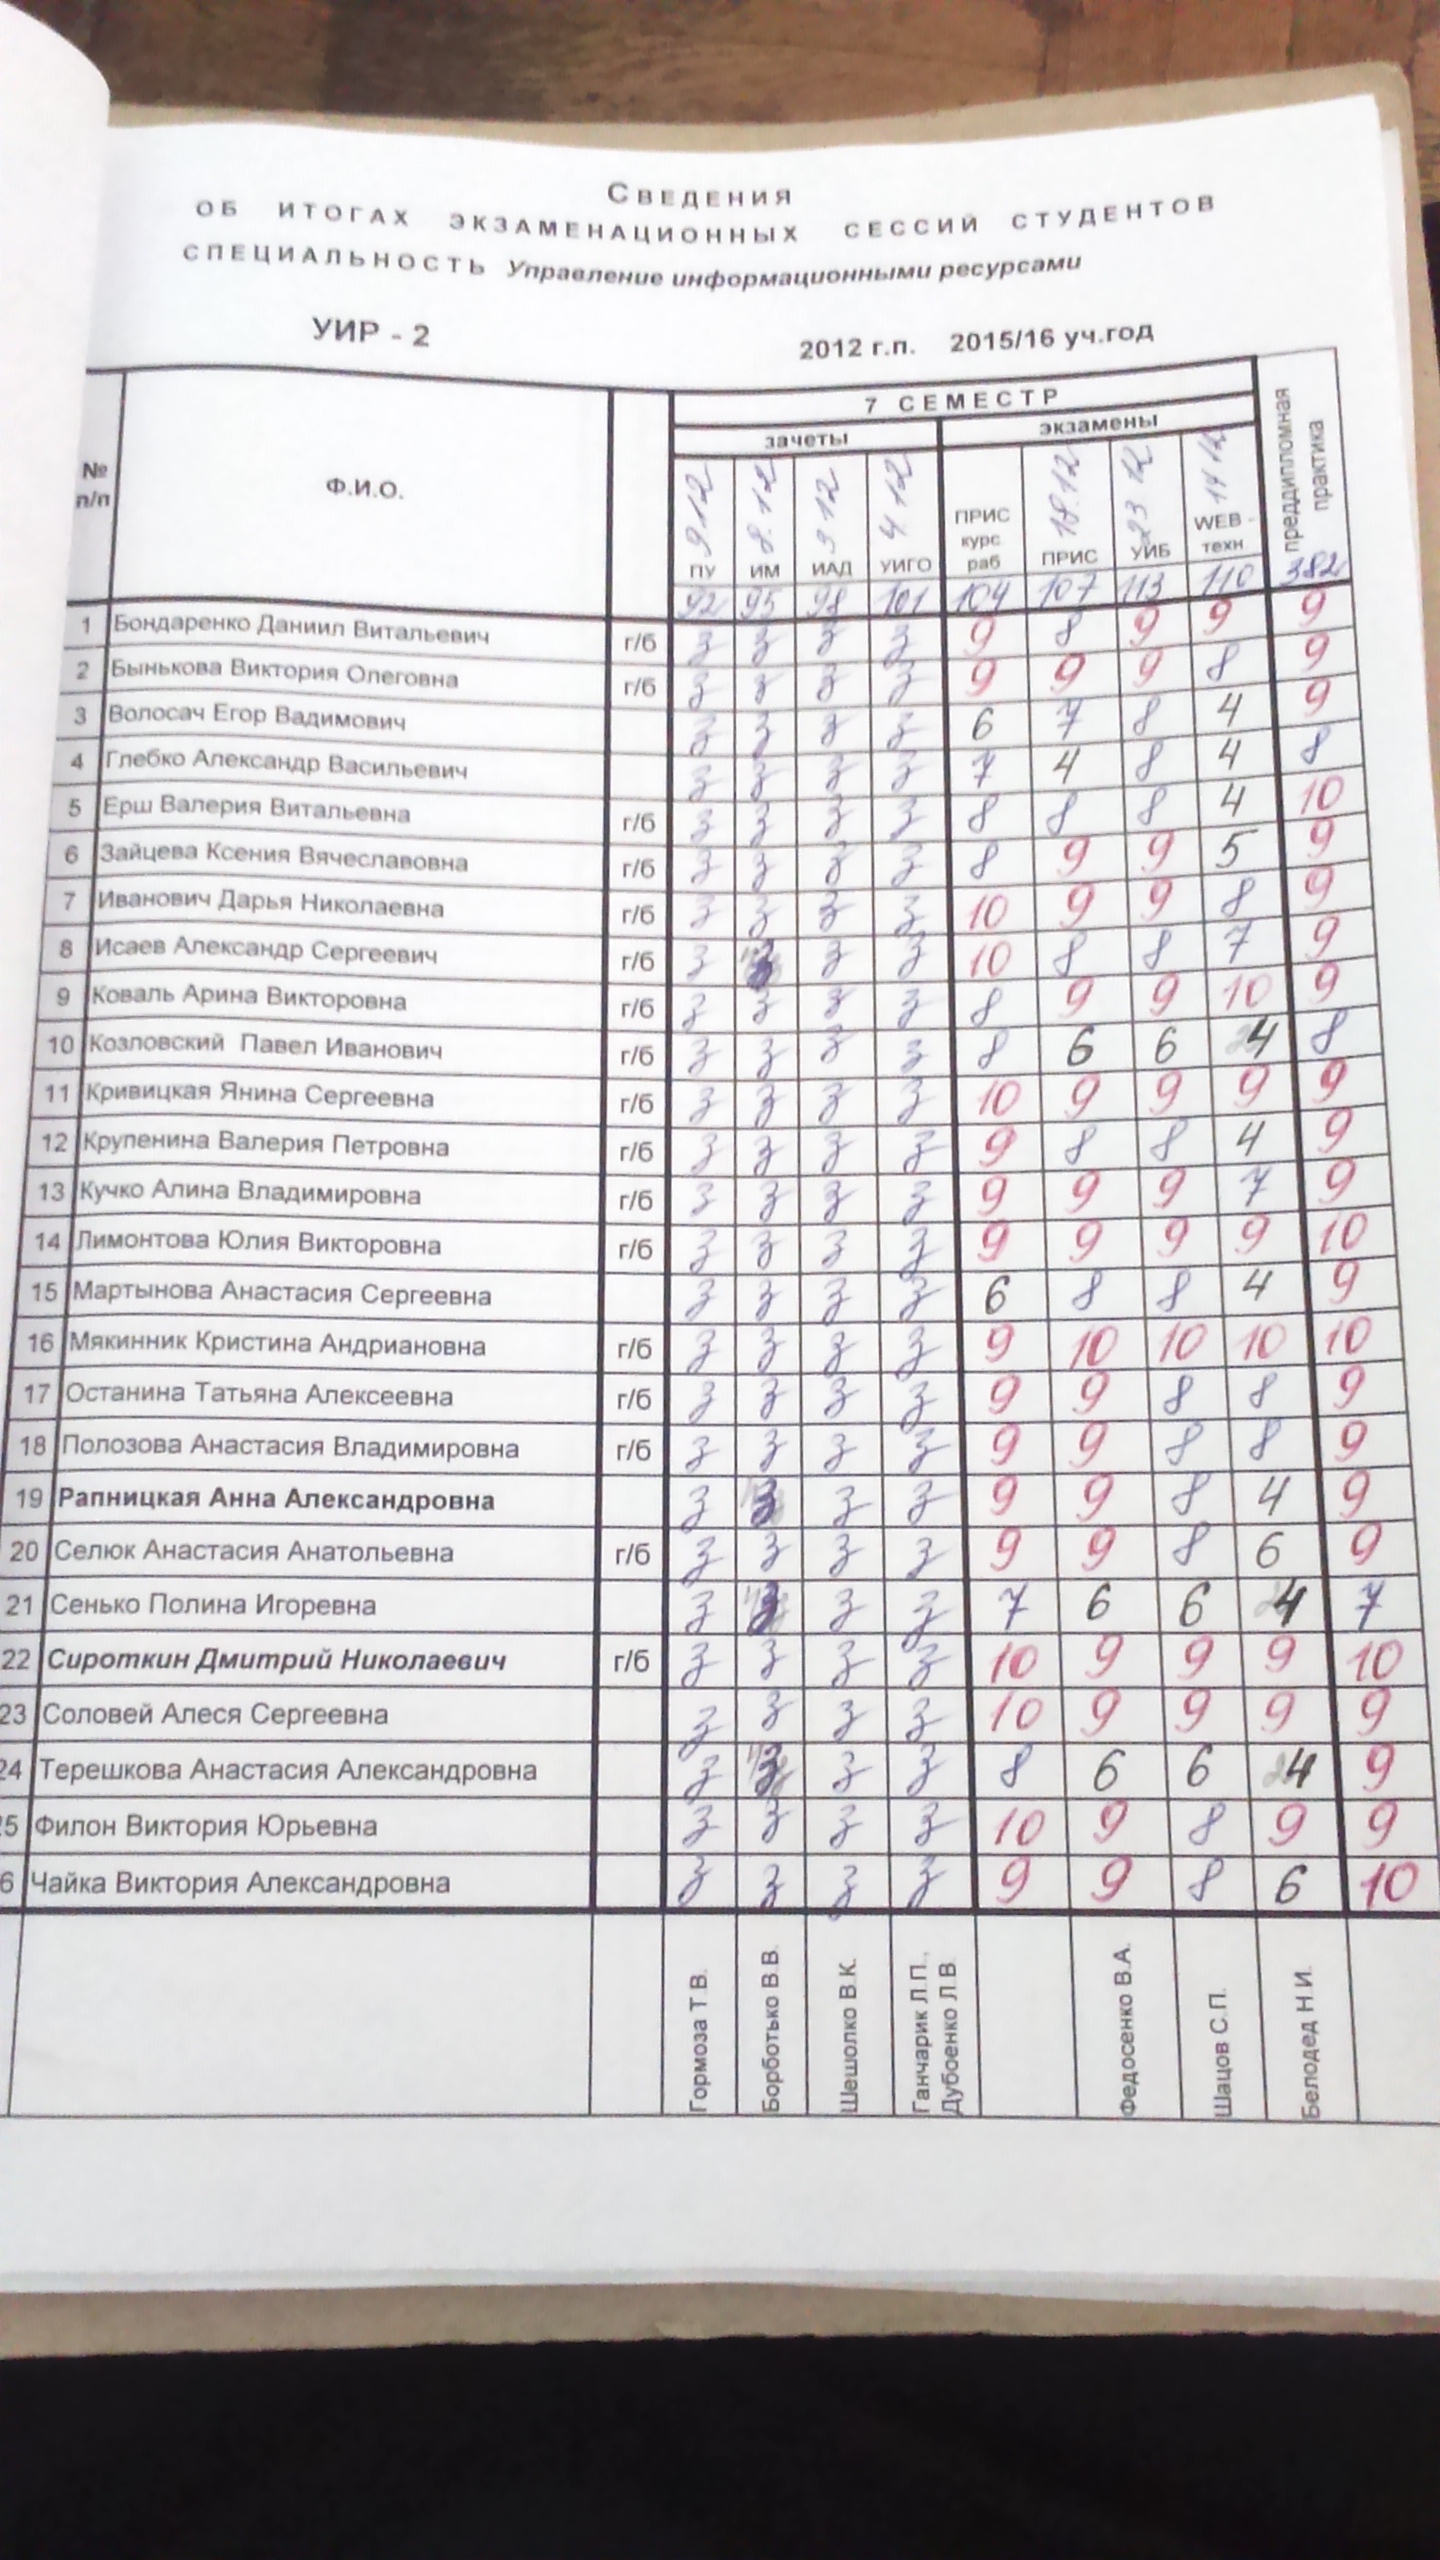 Сведения
ОБ ИТОГАХ ЭКЗАМЕНАЦИОННЫХ СЕССИЙ СТУДЕНТОВ
СПЕЦИАЛЬНОСТЬ Управление информационными ресурсами
УИР - 2 2012 г.п. 2015/16 уч.год
№ п/п Ф.И.О. 7 СЕМЕСТР преддипломная практика
зачеты экзамены
9.12 8.12 3.12 4.12 18.12 23.12 14.12
ПУ ИМ ИАД УИГО ПРИС курс раб ПРИС УИБ WEB - техн
92 95 98 101 104 107 113 110 382
1 Бондаренко Даниил Витальевич г/б з з з з 9 8 9 9 9
2 Бынькова Виктория Олеговна г/б з з з з 9 9 9 8 9
3 Волосач Егор Вадимович з з з з 6 7 8 4 9
4 Глебко Александр Васильевич з з з з 7 4 8 4 8
5 Ерш Валерия Витальевна г/б з з з з 8 8 8 4 10
6 Зайцева Ксения Вячеславовна г/б з з з з 8 9 9 5 9
7 Иванович Дарья Николаевна г/б з з з з 10 9 9 8 9
8 Исаев Александр Сергеевич г/б з з з з 10 8 8 7 9
9 Коваль Арина Викторовна г/б з з з з 8 9 9 10 9
10 Козловский Павел Иванович г/б з з з з 8 6 6 4 8
11 Кривицкая Янина Сергеевна г/б з з з з 10 9 9 9 9
12 Крупенина Валерия Петровна г/б з з з з 9 8 8 4 9
13 Кучко Алина Владимировна г/б з з з з 9 9 9 7 9
14 Лимонтова Юлия Викторовна г/б з з з з 9 9 9 9 10
15 Мартынова Анастасия Сергеевна з з з з 6 8 8 4 9
16 Мякинник Кристина Андриановна г/б з з з з 9 10 10 10 10
17 Останина Татьяна Алексеевна г/б з з з з 9 9 8 8 9
18 Полозова Анастасия Владимировна г/б з з з з 9 9 8 8 9
19 Рапницкая Анна Александровна з з з з 9 9 8 4 9
20 Селюк Анастасия Анатольевна г/б з з з з 9 9 8 6 9
21 Сенько Полина Игоревна з з з з 7 6 6 4 7
22 Сироткин Дмитрий Николаевич г/б з з з з 10 9 9 9 10
23 Соловей Алеся Сергеевна з з з з 10 9 9 9 9
24 Терешкова Анастасия Александровна з з з з 8 6 6 4 9
25 Филон Виктория Юрьевна з з з з 10 9 8 9 9
6 Чайка Виктория Александровна з з з з 9 9 8 6 10
Гормоза Т.В. Борботько В.В. Шешолко В.К. Ганчарик Л.П., Дубоенко Л.В. Федосенко В.А. Шацов С.П. Белодед Н.И.